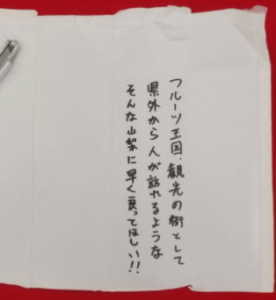 フルーツ王国、観光の街として
県外から人が訪れるような
そんな山梨に早く戻ってほしい!!